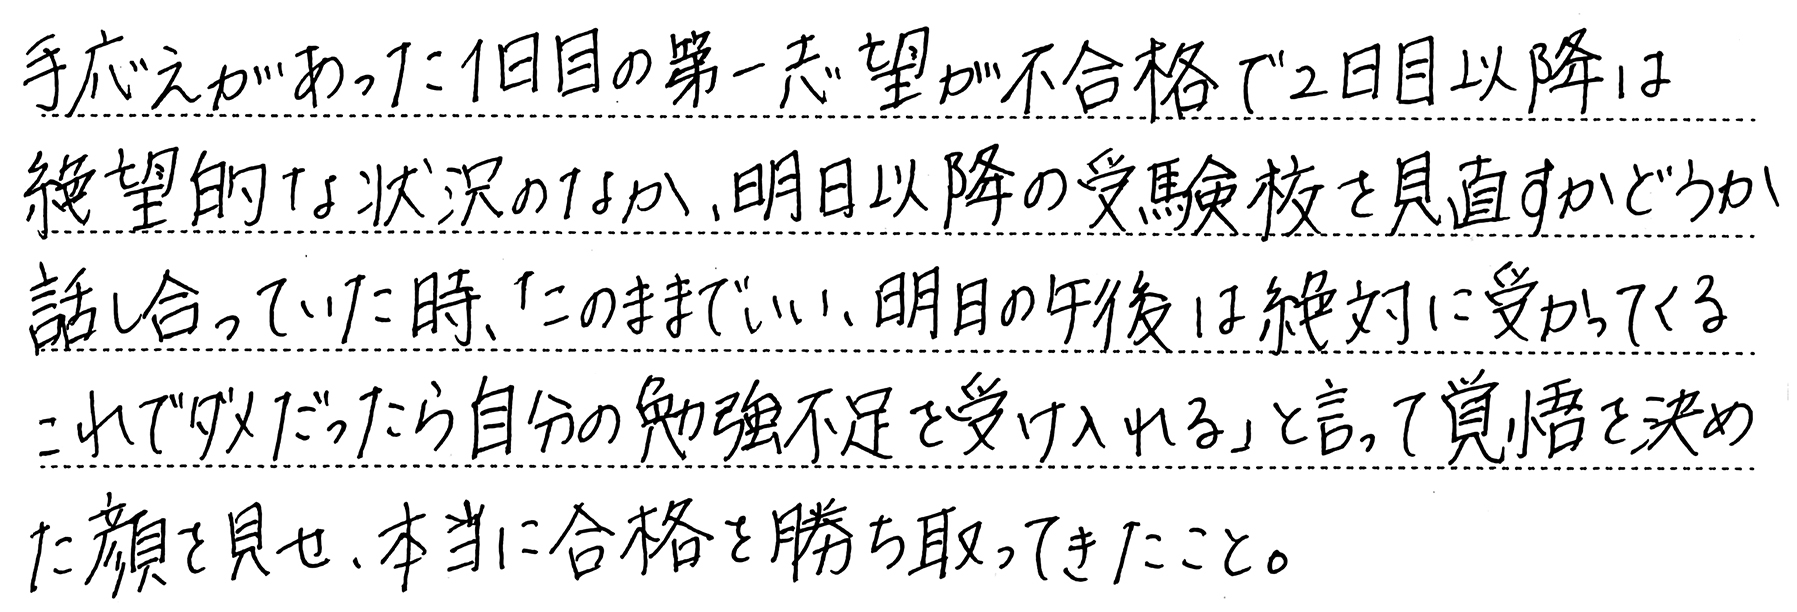 手応えがあった1日目の第一志望が不合格で2日目以降は
絶望的な状況のなか、明日以降の受験校を見直すかどうか
話し合っていた時、「このままでいい、明日の午後は絶対に受かってくる
これでダメだったら自分の勉強不足を受け入れる」と言って覚悟を決め
た顔を見せ、本当に合格を勝ち取ってきたこと。